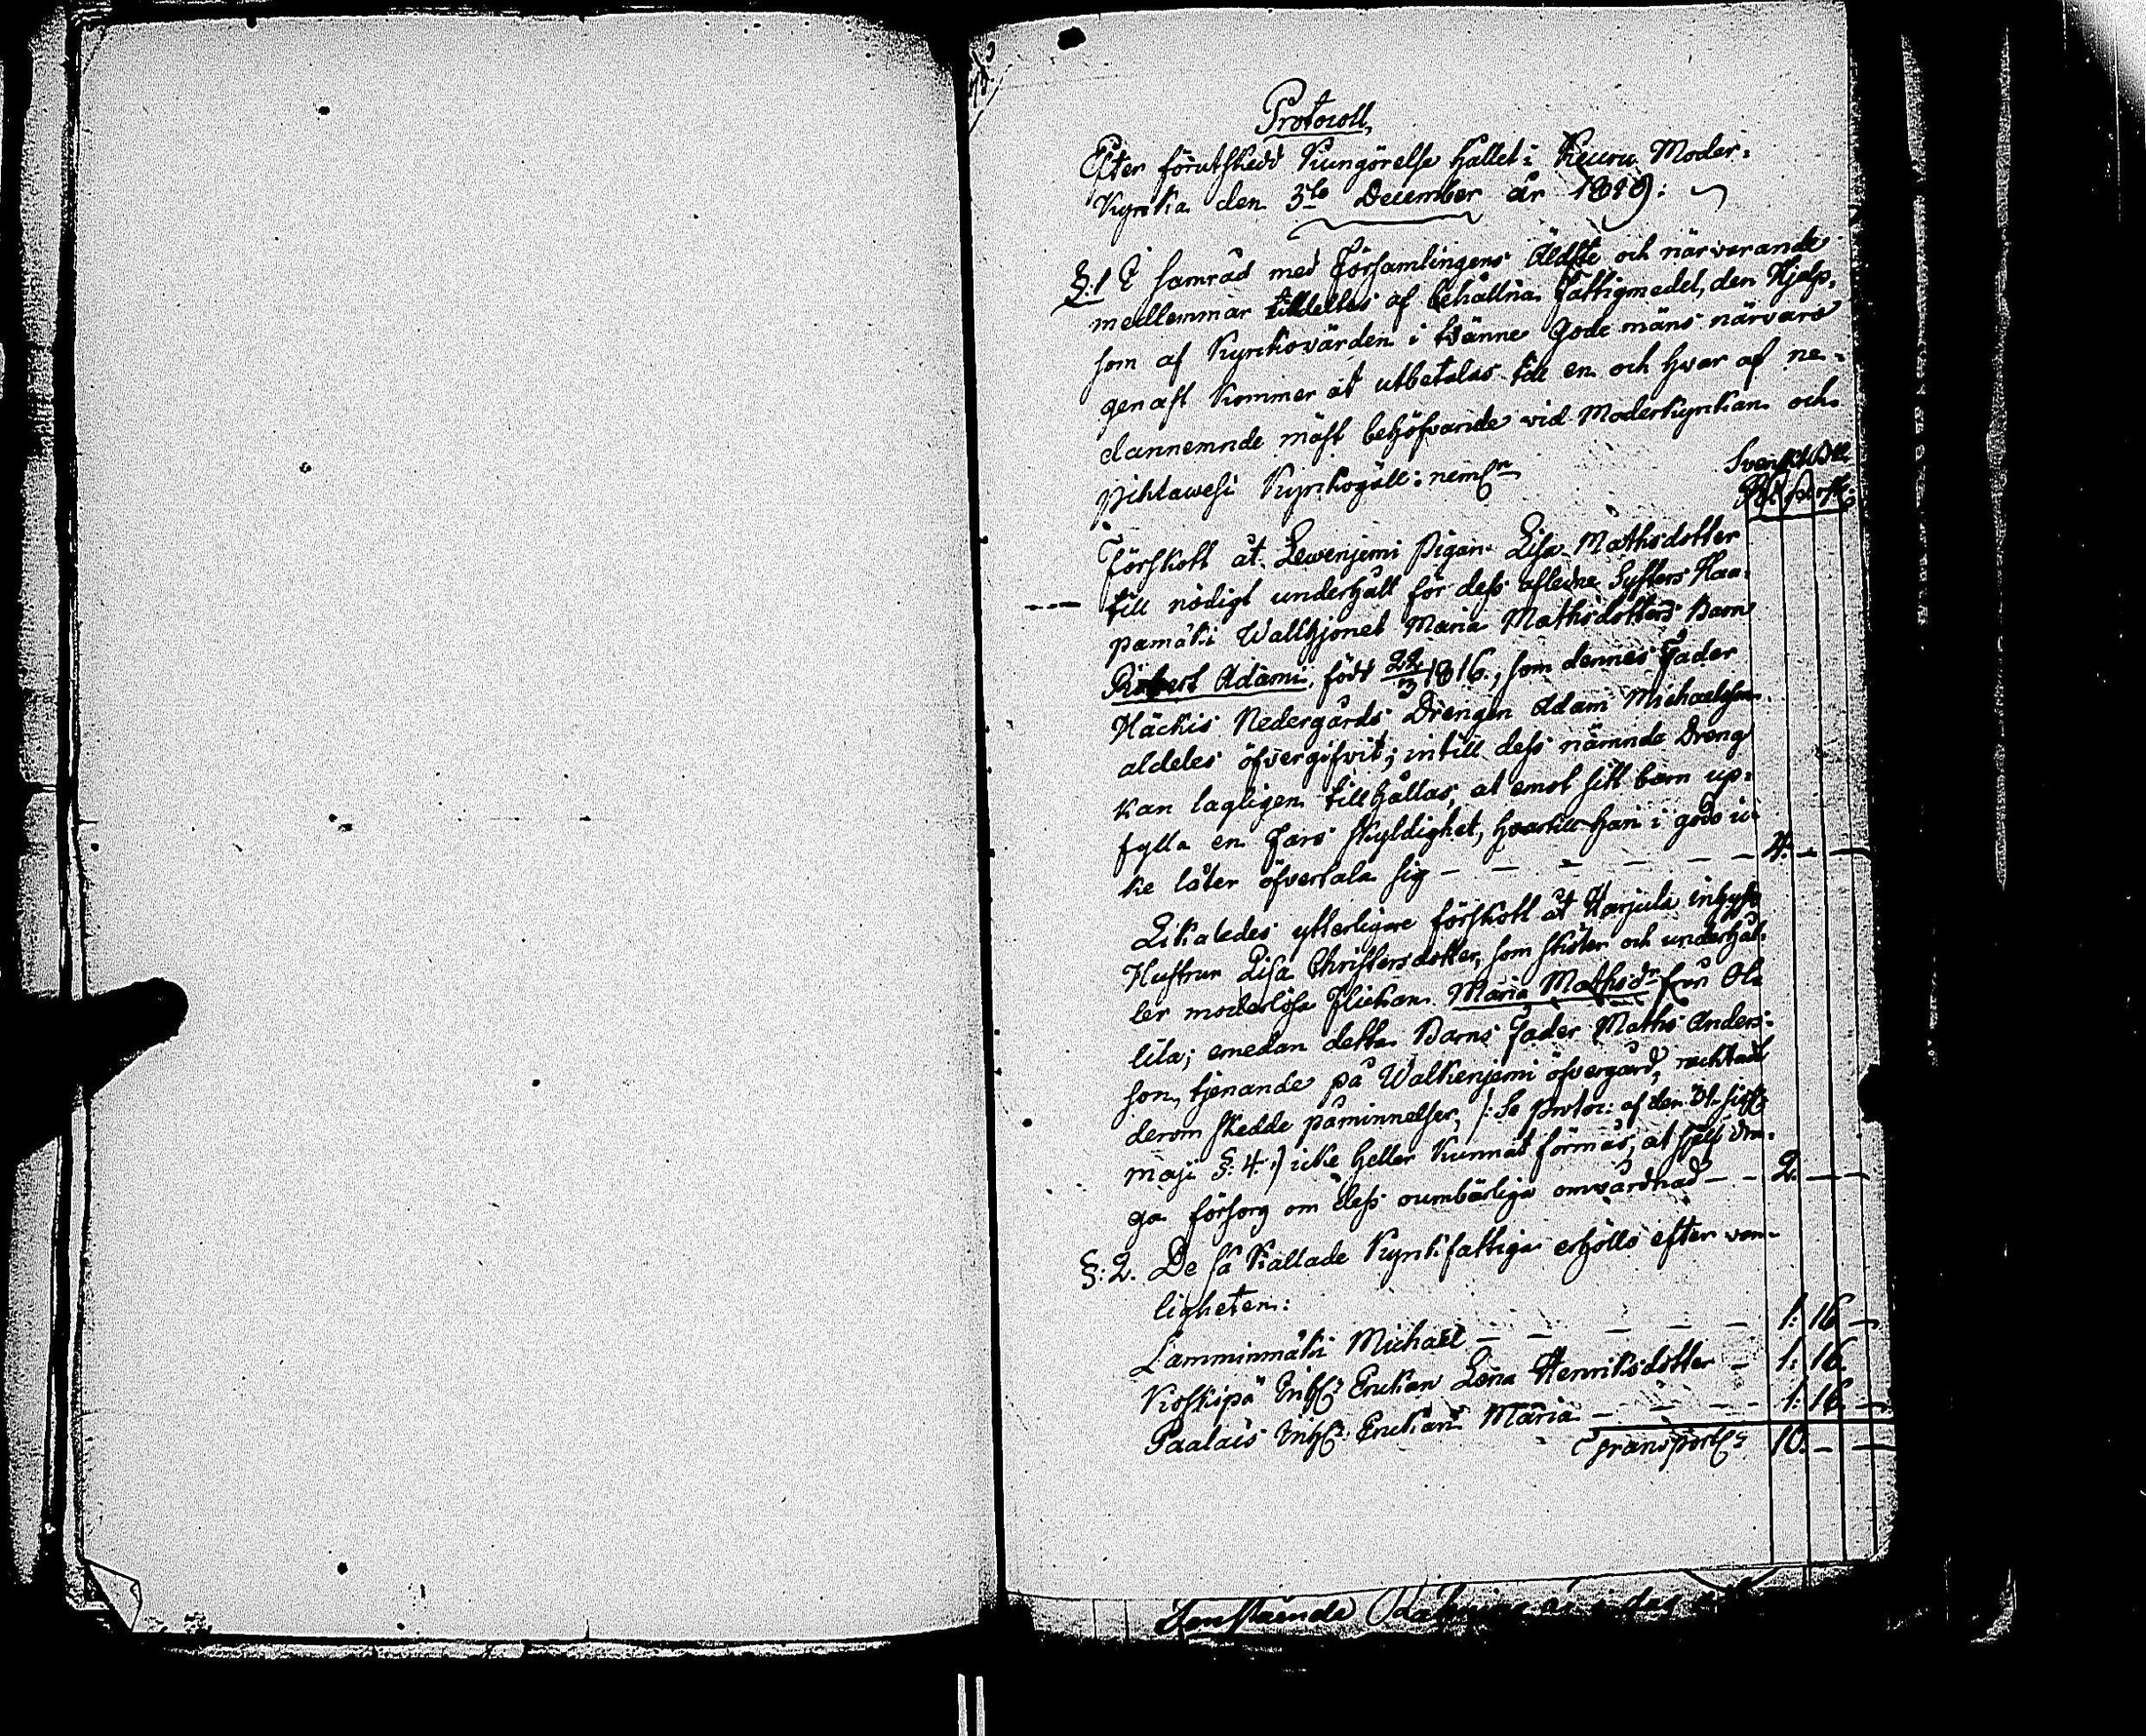 Protocoll,
Efter förutskedd Kungörelse hållet i Keuru Moder-
Kyrka den 3de December år 1819.
§.1 I samråd med Församlingens Äldste och närvarande
medlemmar tilldeltes af behållna Fattigmedel, den Hjelp,
som af Kyrkovärden i tvänne Gode mäns närvaro
genast kommer at utbetalas till en och hvar af ne-
dannemnde mäst behöfvande vid Moderkyrkan och
Pihlawesi Kyrkogäll: neml.n
Svenskt
Förskott åt Lewenjemi Pigan Lisa Mathsdotter
till nödigt underhåll för dess aflidne Systers Haa-
pamäki Wallhjonet Maria Mathsdotters Barn
Robert Adami, född 22/3 1816, som dennes Fader
Häckis Nedergårds Drengen Adam Michaelsson
aldeles öfvergifvit; intill dess nämnde Dreng
kan lagligen tillhållas, at emot sitt barn up-
fylla en Fars skyldighet, hvartill han i godo ic-
ke låter öfvertala sig — — — — — 4. — —
Likaledes ytterligare förskott åt Harjula inhyse
Hustrun Lisa Christersdotter, som sköter och underhål-
ler moderlösa Flickan Maria Mathsdr från
lila; emedan detta Barns Fader Maths Anders-
son, tjenande på Walkenjemi öfvergård, oachtadt
derom skedde påminnelser, /: Se Protoc: af den 31 sistl.
Maji §: 4 :/ icke heller kunnat förmås, at sjelf dra-
ga försorg om dess oumbärliga omvårdnad — — 2. — —
§: 2. De så kallade Kyrkfattiga erhöllo efter van-
ligheten:
Lamminmäki Michael — — — — — 1: 16 —
Koskipä Inh. Enkan Lena Henriksdotter — 1: 16.
Paalais Inh. Enkan Maria — — — — 1: 16 —
Transport 10. — —